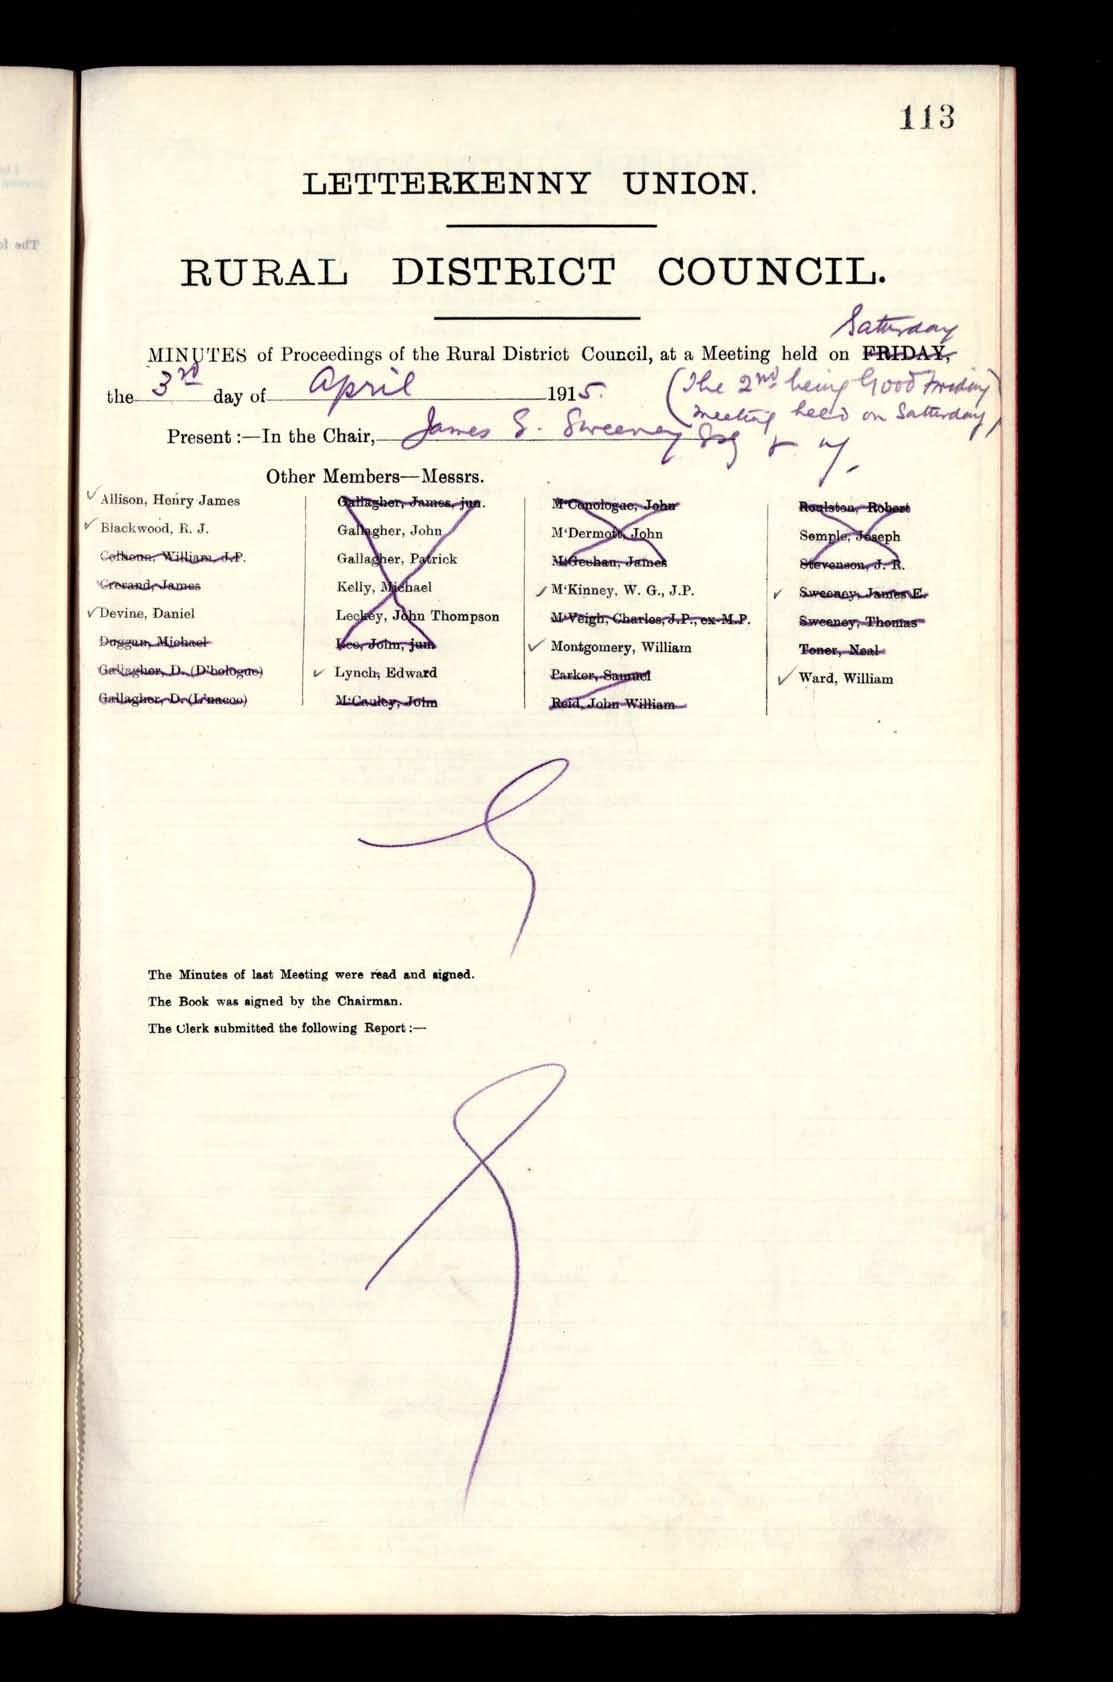 113
LETTERKENNY UNION.
RURAL DISTRICT COUNCIL.
Saturday
MINUTES of Proceedings of the Rural District Council, at a Meeting held on FRIDAY,
the 3rd day of April 1915. (The 2nd being Good Friday
meeting held on Saturday)
Present :—In the Chair, James E. Sweeney Esq
Other Members—Messrs.
Allison, Henry James
Blackwood, R. J.
Colhoun, William, J.P.
Crerand, James
Devine, Daniel
Duggan, Michael
Gallagher, D. (D'hologue)
Gallagher, D. (L'nacoo)
Gallagher, James, jun.
Gallagher, John
Gallagher, Patrick
Kelly, Michael
Leckey, John Thompson
Lee, John, jun.
Lynch, Edward
M'Cauley, John
M'Conologue, John
M'Dermott, John
M'Geehan, James
M'Kinney, W. G., J.P.
M'Veigh, Charles, J.P., ex-M.P.
Montgomery, William
Parker, Samuel
Reid, John William
Roulston, Robert
Semple, Joseph
Stevenson, J. R.
Sweeney, James E.
Sweeney, Thomas
Toner, Neal
Ward, William
The Minutes of last Meeting were read and signed.
The Book was signed by the Chairman.
The Clerk submitted the following Report :—